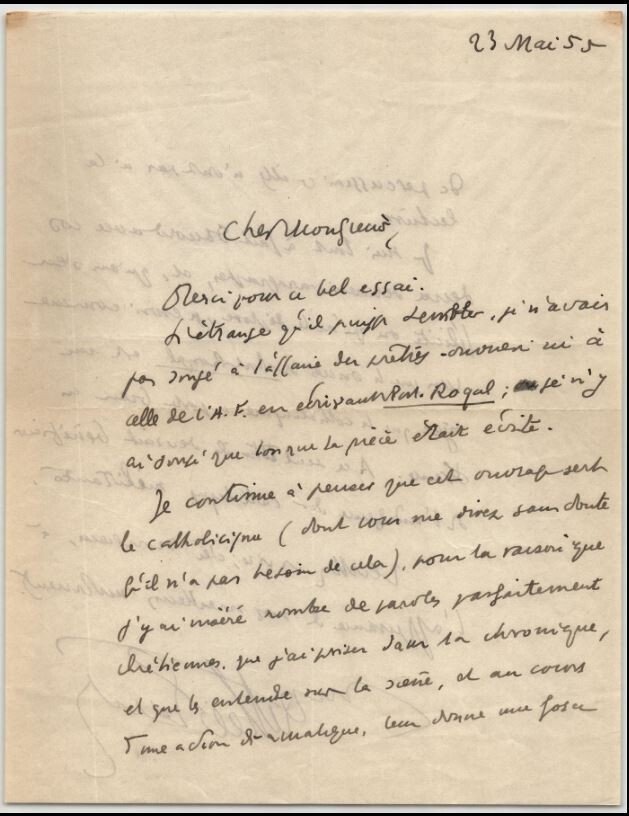 23 Mai 55
Cher Monsieur,
Merci pour ce bel essai.
Si étrange qu'il puisse sembler, je n'avais
pas songé à l'affaire des prêtres-ouvriers ni à
celle de l'A.F. en écrivant Port-Royal ; je n'y
ai songé que lorsque la pièce était écrite.
Je continue à penser que cet ouvrage sert
le catholicisme (dont vous me direz sans doute
qu'il n'a pas besoin de cela), pour la raison que
j'y ai inséré nombre de paroles parfaitement
chrétiennes, que j'ai prises dans la chronique,
et que les entendre sur la scène, et au cours
d'une action dramatique, leur donne une force